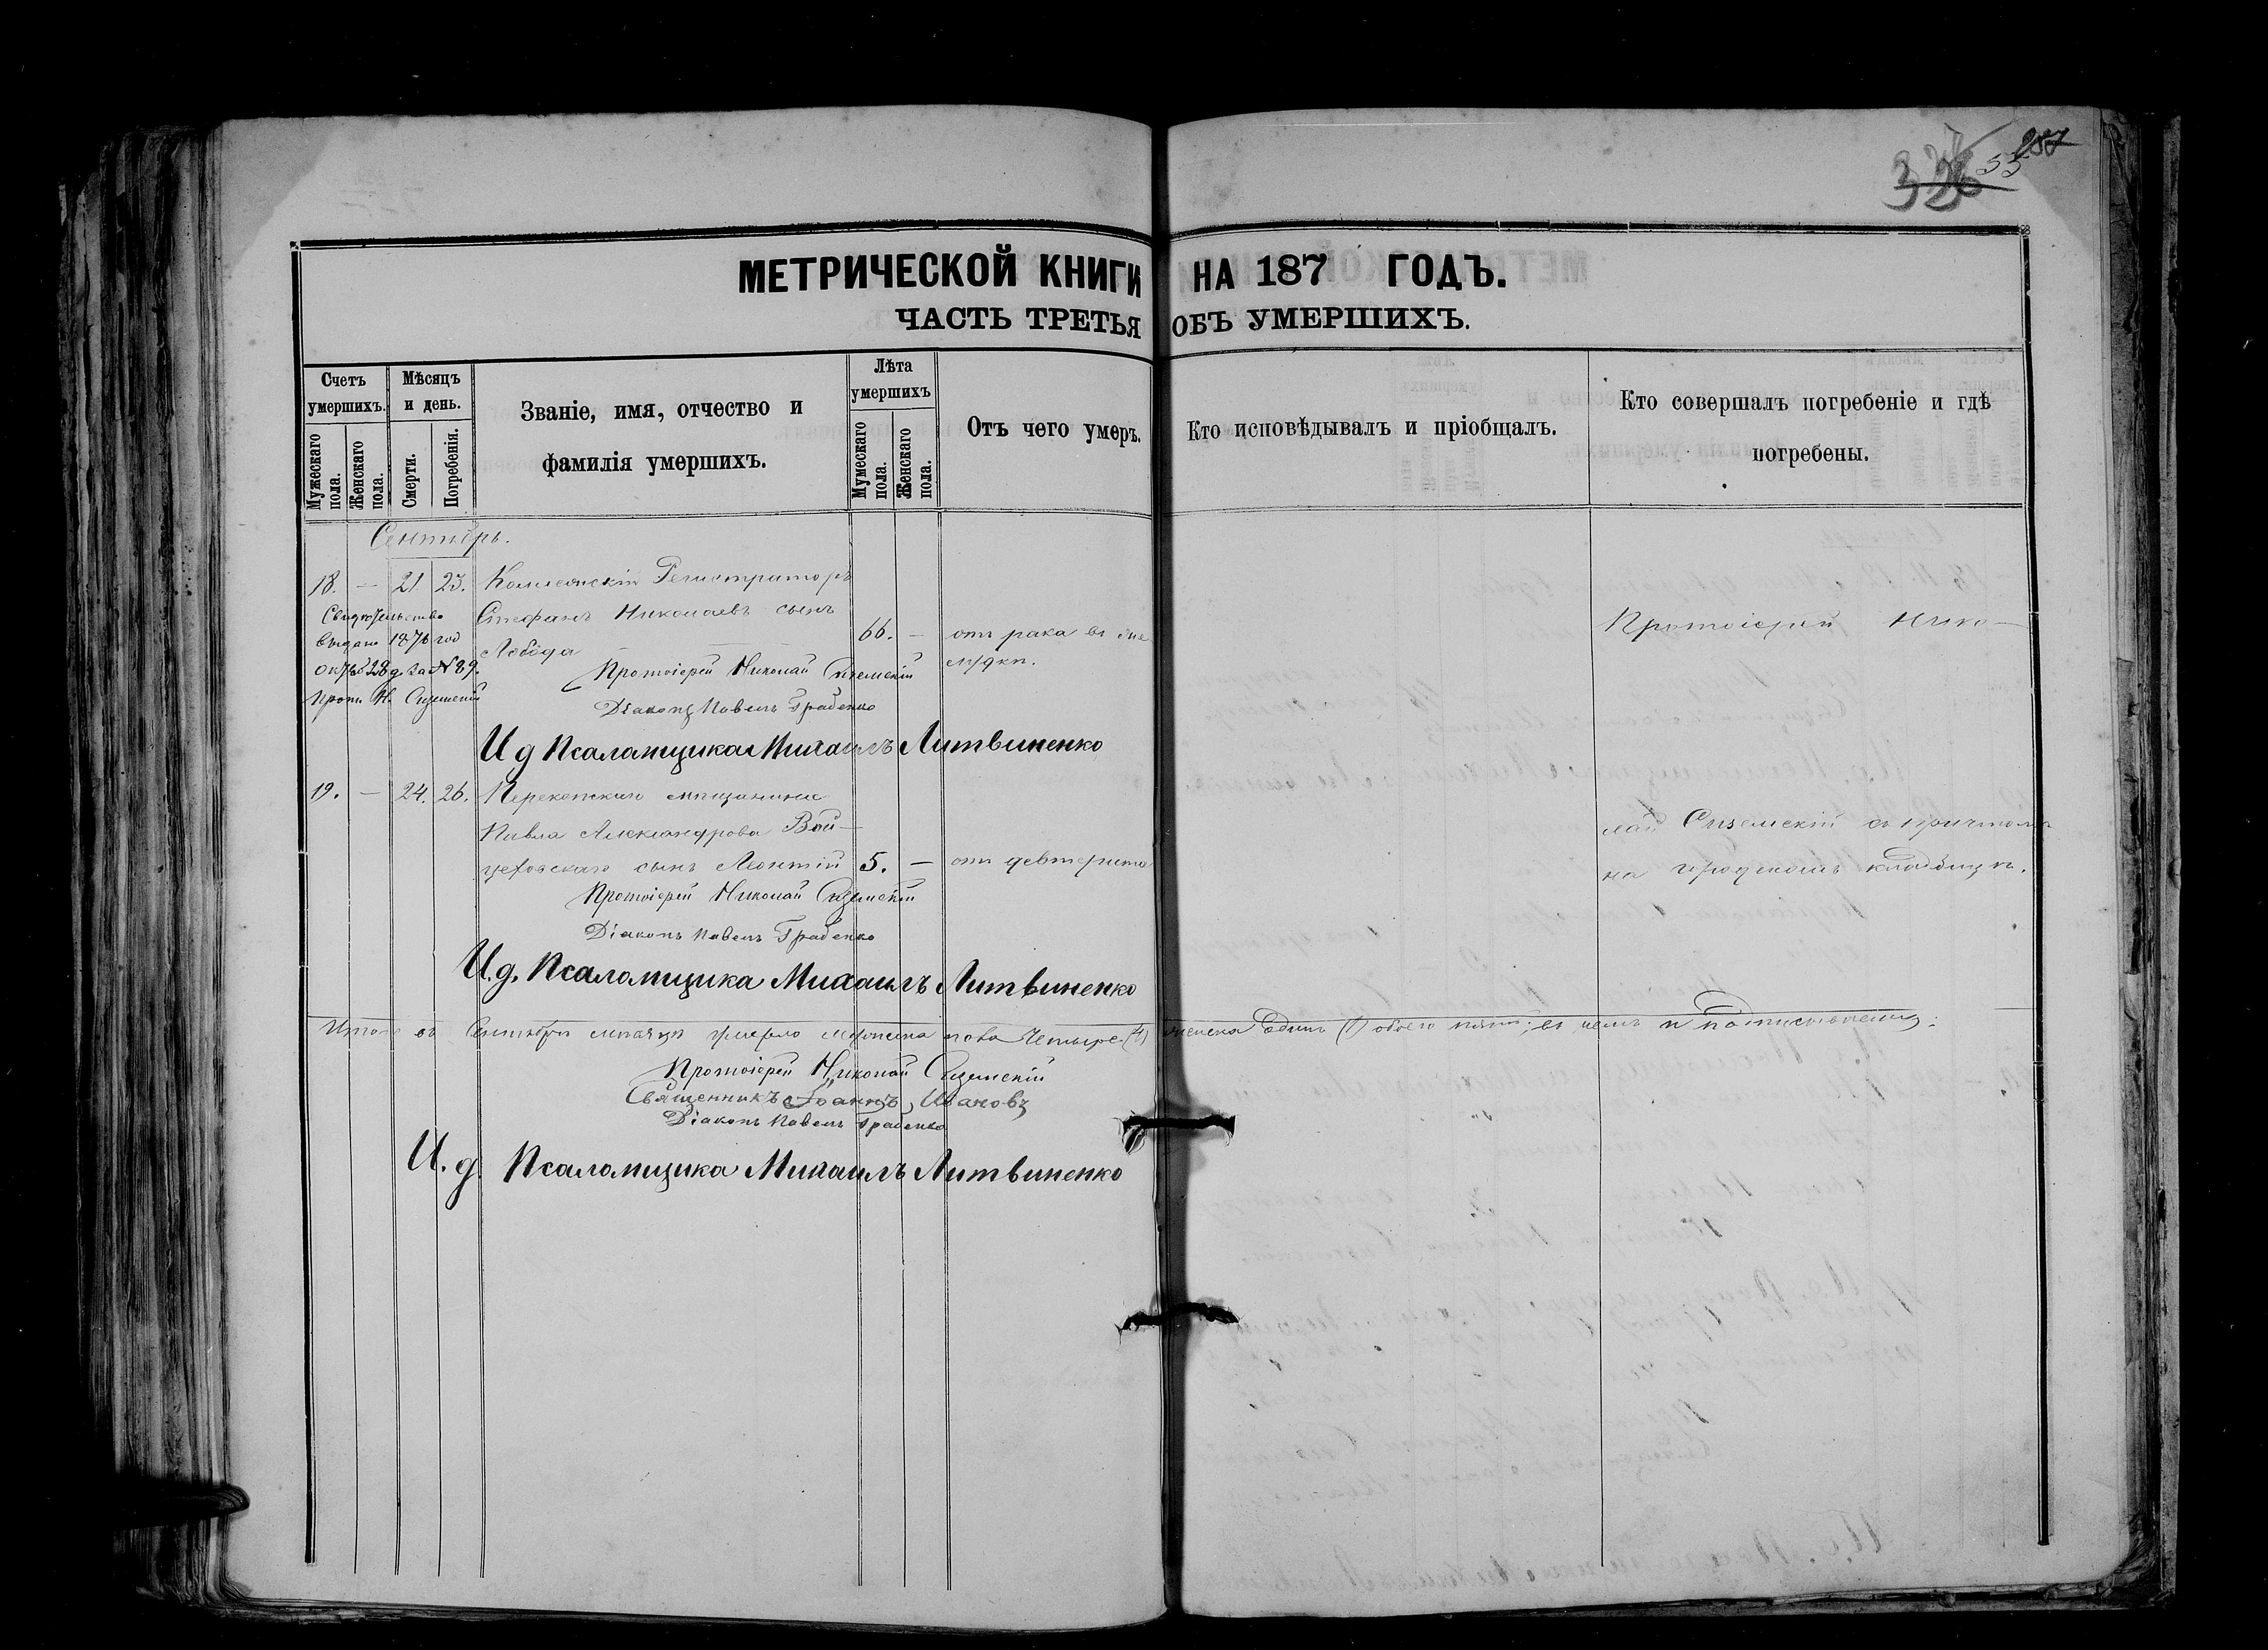 287
326 55
МЕТРИЧЕСКОЙ КНИГИ НА 187 ГОДЪ.
ЧАСТЬ ТРЕТЬЯ ОБЪ УМЕРШИХЪ.
Счетъ умершихъ.
Мужескаго пола.
Женскаго пола.
Мѣсяцъ и день.
Смерти.
Погребенія.
Званіе, имя, отчество и
фамилія умершихъ.
Лѣта умершихъ
Мужескаго пола.
Женскаго пола.
Отъ чего умеръ.
Кто исповѣдывалъ и пріобщалъ.
Кто совершалъ погребеніе и гдѣ
погребены.
Сентябрь.
18. — 21 23. Коллежскій Регистраторъ
Стефанъ Николаевъ сынъ
Лобода 66. — отъ рака въ
Свидѣтельство
выдано 1876 год
28 д. за № 89.
Прот. Н. Сиземскій
Протоіерей Николай Сиземскій
Діаконъ Павелъ Граденко
И д Псаломщика Михаилъ Литвиненко
Протоіерей Нико-
19. — 24. 26. Перекопскаго мѣщанина
Павла Александрова Вой-
цеховскаго сынъ Леонтій 5. — отъ девтерита
Протоіерей Николай Сиземскій
Діаконъ Павелъ Граденко
И.д. Псаломщика Михаилъ Литвиненко
лай Сиземскій съ причтомъ
на городскомъ кладбищѣ.
Итого въ Сентябрѣ мѣсяцѣ умерло мужеска пола Четыре (4) женска Одинъ (1) обоего пять; въ чемъ и подписываемся:
Протоіерей Николай Сиземскій
Священникъ Іоаннъ Ивановъ
Діаконъ Павелъ Граденко
И. д. Псаломщика Михаилъ Литвиненко